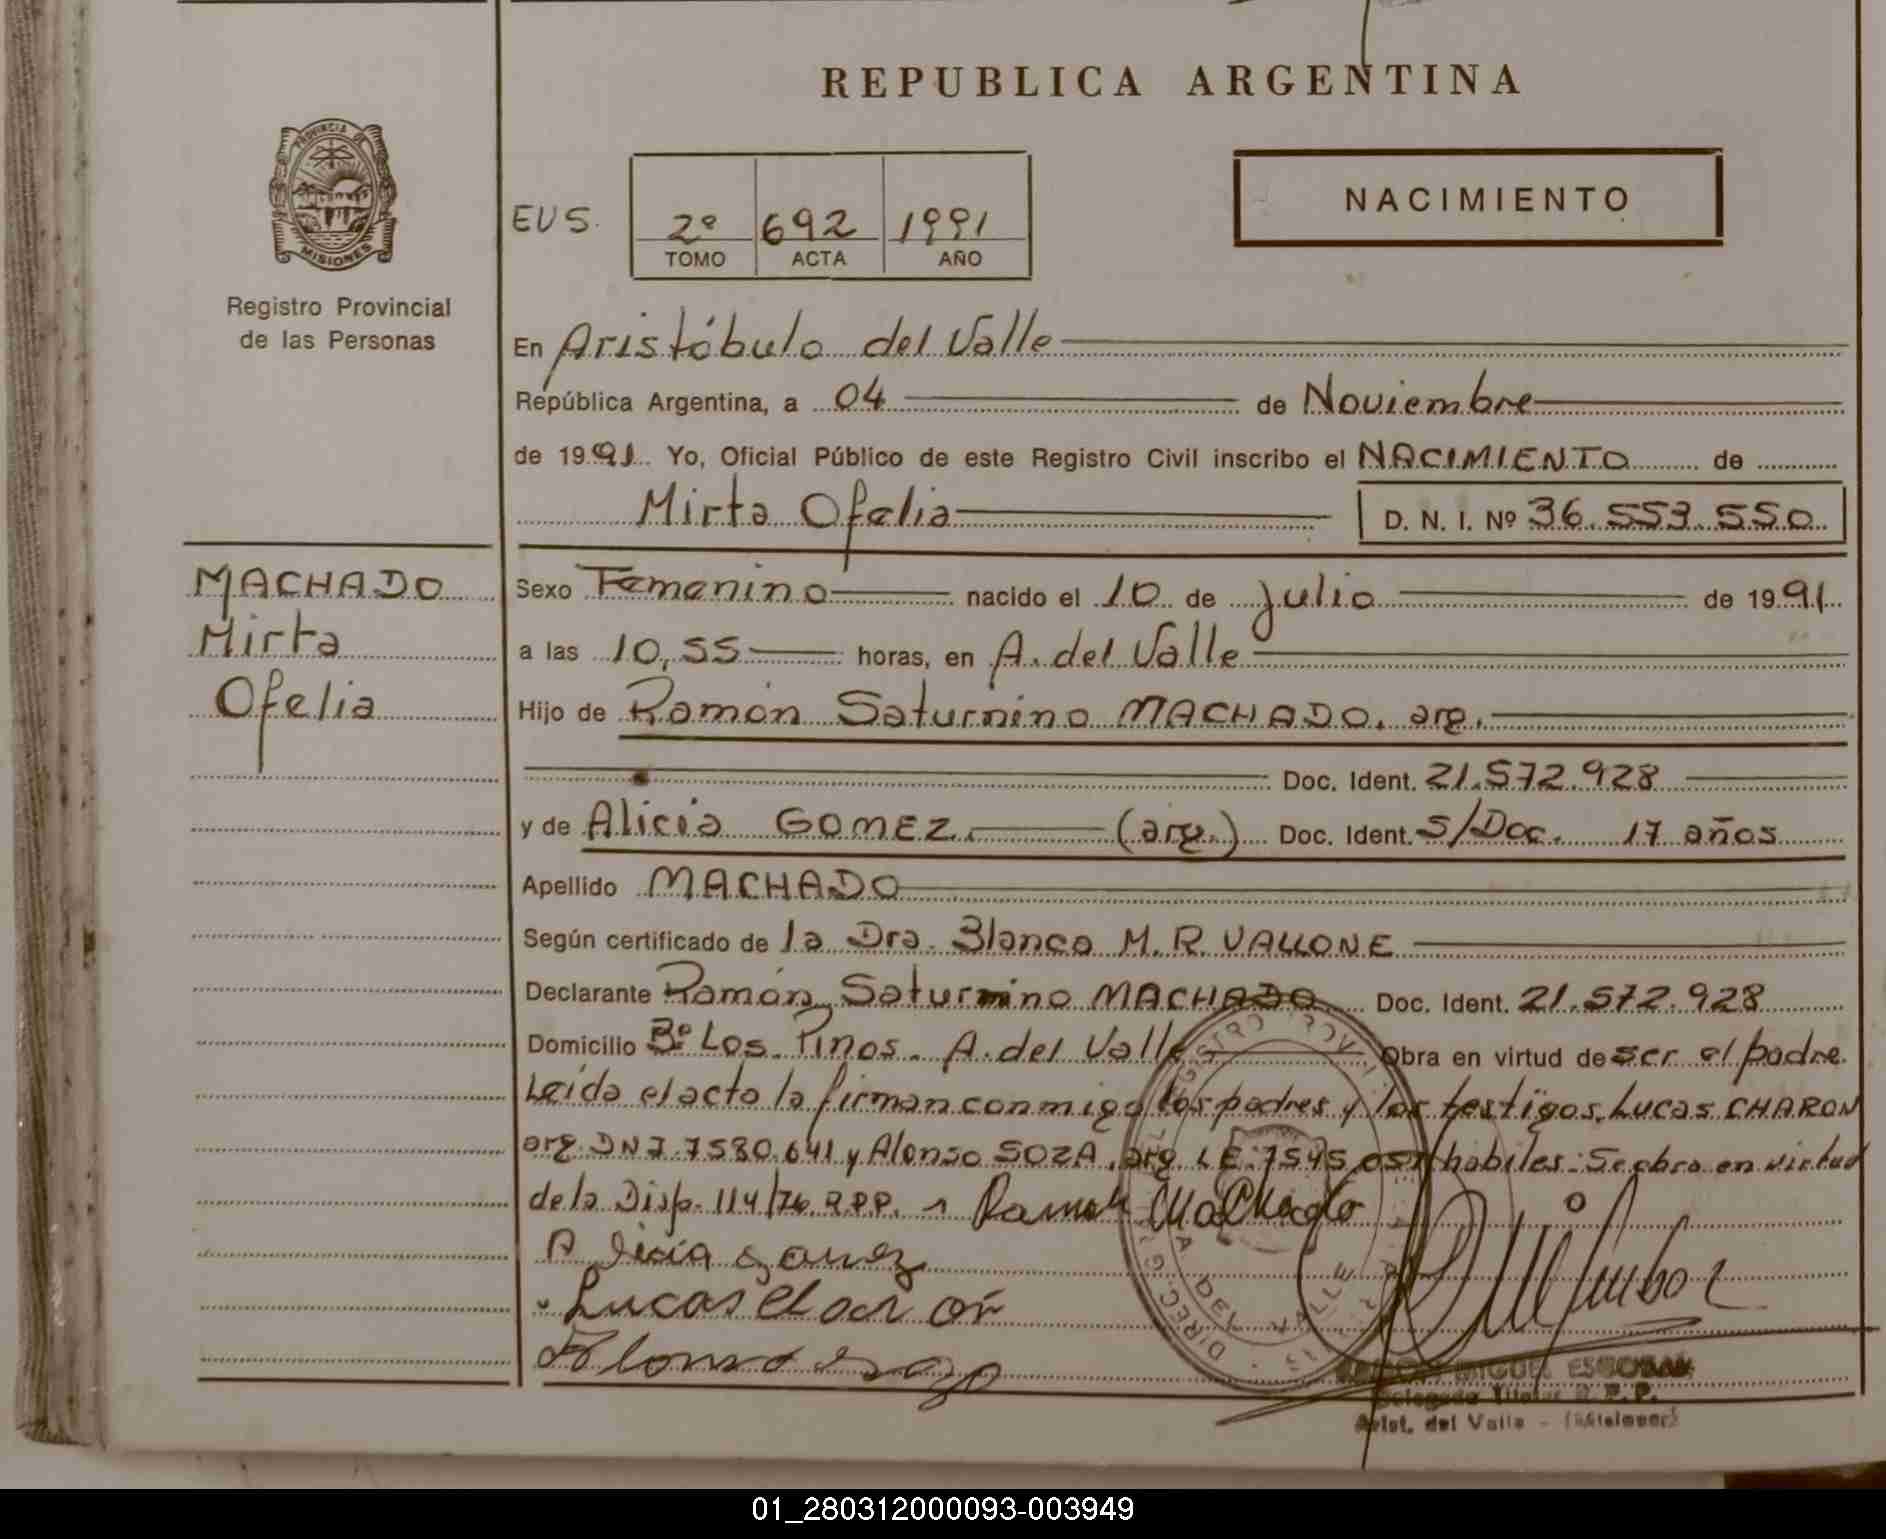 REPUBLICA ARGENTINA
PROVINCIA DE
MISIONES
Registro Provincial
de las Personas
NACIMIENTO
EUS.
2º 692 1991
TOMO ACTA AÑO
En Aristóbulo del Valle
República Argentina, a 04 de Noviembre
de 1991 Yo, Oficial Público de este Registro Civil inscribo el NACIMIENTO de
Mirta Ofelia D. N. I. Nº 36.553.550
MACHADO
Mirta
Ofelia
Sexo Femenino nacido el 10 de Julio de 1991
a las 10,55 horas, en A. del Valle
Hijo de Ramón Saturnino MACHADO. arg.
Doc. Ident. 21.572.928
y de Alicia GOMEZ. (arg.) Doc. Ident. S/Doc. 17 años
Apellido MACHADO
Según certificado de la Dra. Blanca M. R. VALLONE
Declarante Ramón Saturnino MACHADO Doc. Ident. 21.572.928
Domicilio Bº Los Pinos. A. del Valle Obra en virtud de ser el padre.
Leída el acta la firman conmigo los padres y los testigos, Lucas CHARON
arg. DNI 7580.641 y Alonso SOZA, arg. LE. 7545.057 habiles. Se obra en virtud
de la Disp. 114/76 R.P.P. Ramon Machado
Alicia gomez
Lucas charon
Alonso soza
MIGUEL ESCOBAR
Delegado Titular R. P. P.
Arist. del Valle - (Misiones)
01_280312000093-003949